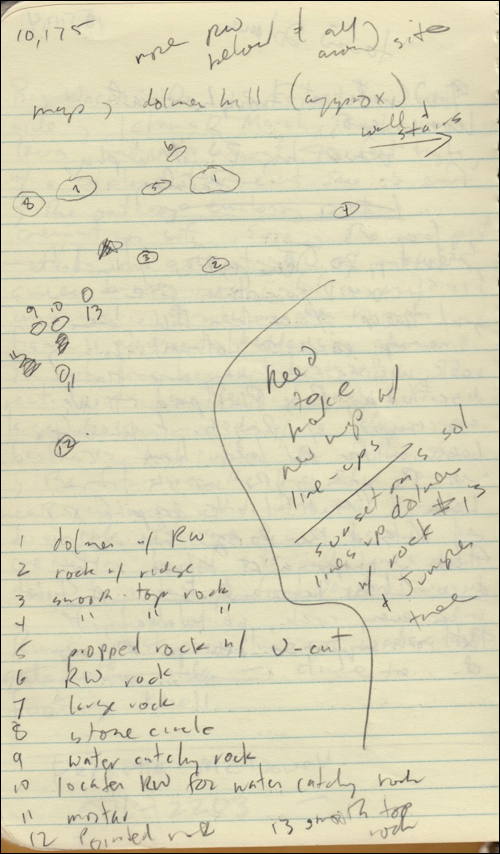 10,175
more RW below & all around site
map → dolmen hill (approx.)
wall & stairs
6
8 7 5 1
4
3 2
9 10 13
11
12
need
take
make
new map w/
line-ups
sunset on s sol
lines up dolmen
w/ rock #13
& Juniper
tree
1 dolmen w/ RW
2 rock w/ ridge
3 smooth-top rock
4 " " "
5 propped rock w/ U-cut
6 RW rock
7 large rock
8 stone circle
9 water catchy rock
10 locater RW for water catchy rock
11 mortar
12 Pointed rock 13 smooth top rock